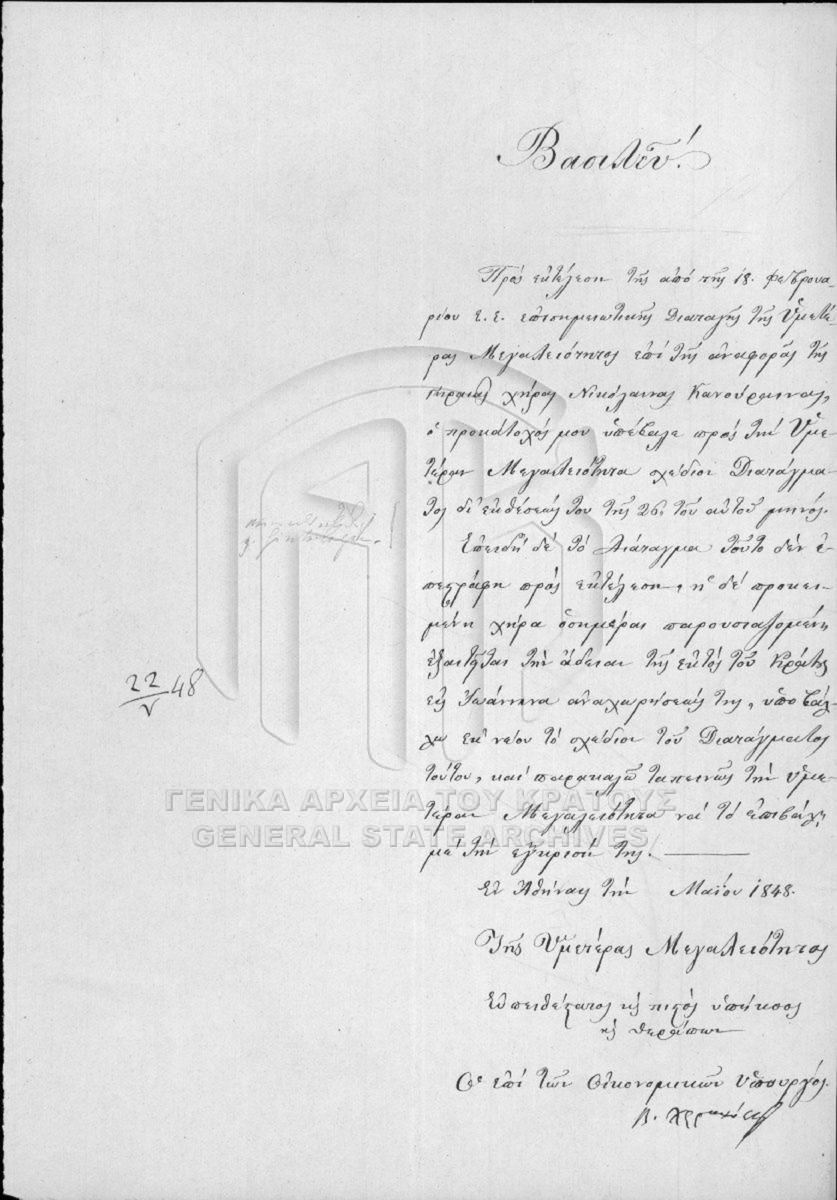 Βασιλεῦ!
Πρὸς ἐκτέλεσιν τῆς ἀπὸ τῆς 18. Φεβρουα-
ρίου ἐ. ἔ. ἐπισημειωτικῆς Διαταγῆς τῆς Ὑμετέ-
ρας Μεγαλειότητος ἐπὶ τῆς ἀναφορᾶς τῆς
χήρας Νικόλαινας
ὁ προκάτοχός μου ὑπέβαλε πρὸς τὴν Ὑμε-
τέραν Μεγαλειότητα σχέδιον Διατάγμα-
τος δι' ἐκθέσεώς του τῆς 26. τοῦ αὐτοῦ μηνός.
Ἐπειδὴ δὲ τὸ Διάταγμα τοῦτο δὲν ἐ-
πεστράφη πρὸς ἐκτέλεσιν, ἡ δὲ προκει-
μένη χήρα ὁσημέραι παρουσιαζομένη
ἐξαιτεῖται τὴν ἄδειαν τῆς ἐκτὸς τοῦ Κράτους
εἰς Ἰωάννινα ἀναχωρήσεώς της, ὑποβάλ-
λω ἐκ νέου τὸ σχέδιον τοῦ Διατάγματος
τούτου, καὶ παρακαλῶ ταπεινῶς τὴν Ὑμε-
τέραν Μεγαλειότητα νὰ τὸ ἐπιβάλῃ
μὲ τὴν ἔγκρισίν της.
Ἐν Ἀθήναις τὴν Μαΐου 1848.
Τῆς Ὑμετέρας Μεγαλειότητος
Εὐπειθέστατος καὶ πιστὸς ὑπήκοος
καὶ θεράπων
Ὁ ἐπὶ τῶν Οἰκονομικῶν Ὑπουργός.
22/V 48
ΓΕΝΙΚΑ ΑΡΧΕΙΑ ΤΟΥ ΚΡΑΤΟΥΣ
GENERAL STATE ARCHIVES